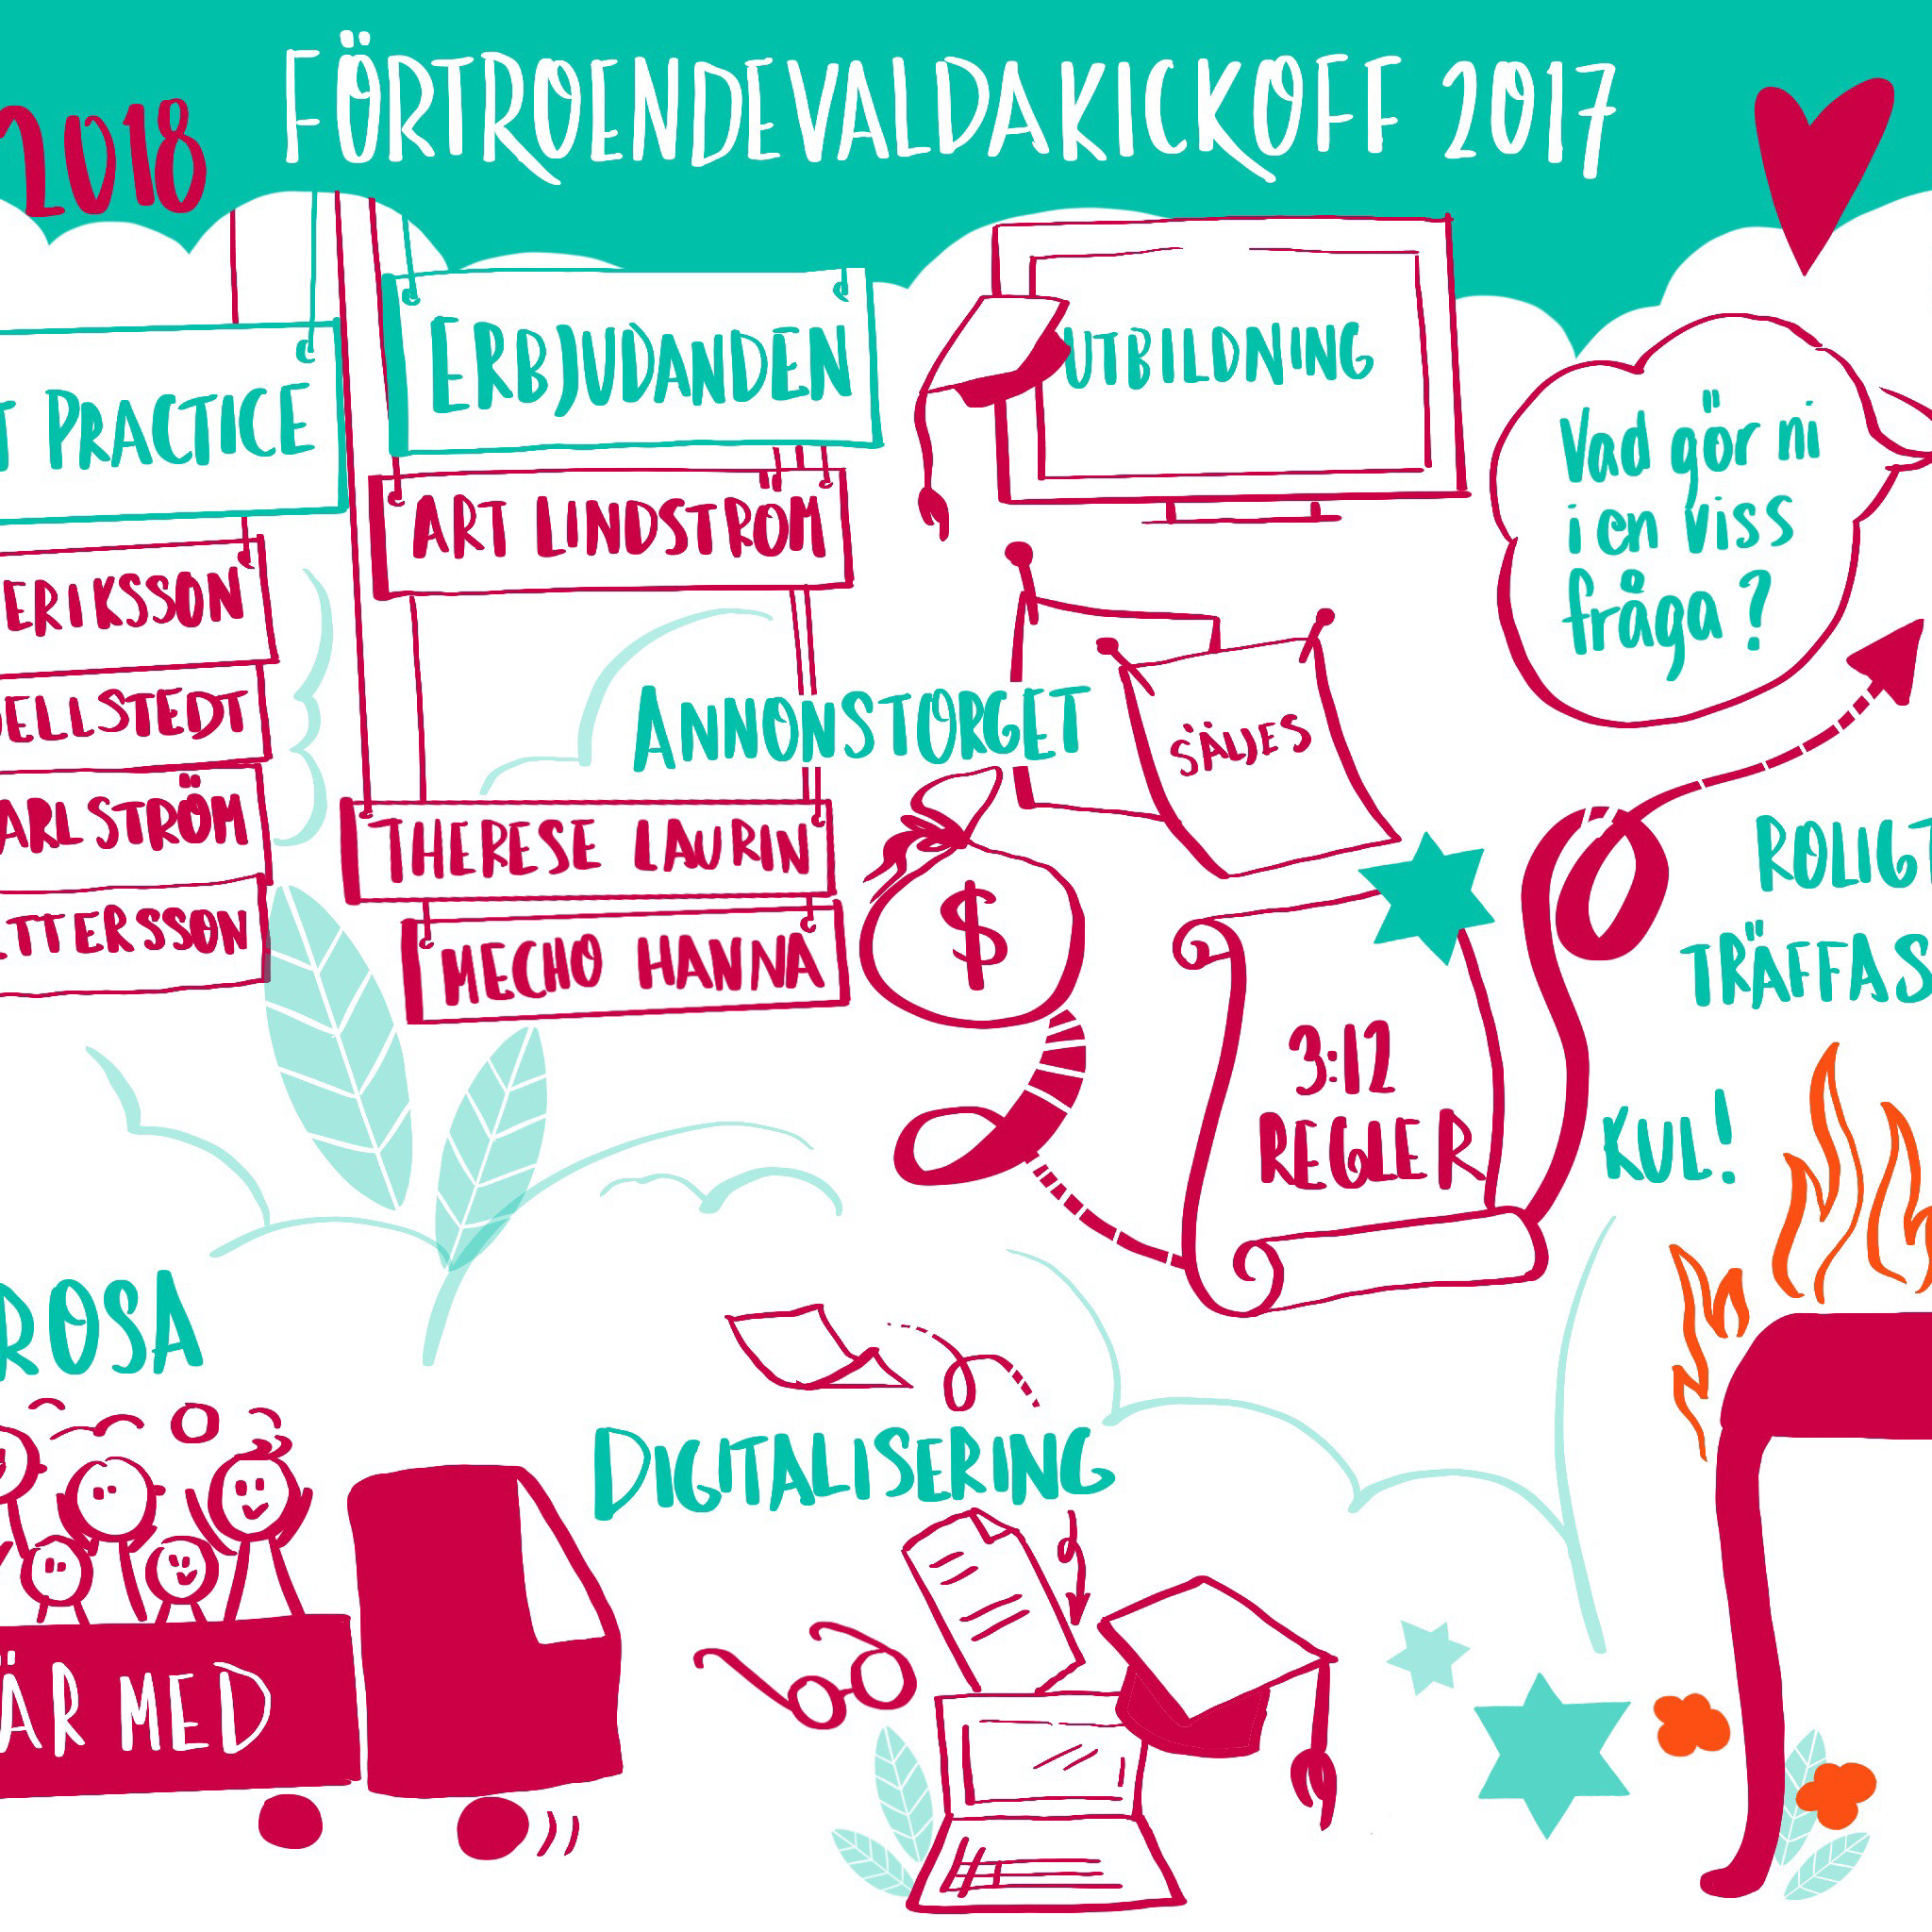 FÖRTROENDEVALDAKICKOFF 2017
2018
ERBJUDANDEN
UTBILDNING
T PRACTICE
Vad gör ni
i en viss
fråga?
ART LINDSTRÖM
ERIKSSON
ELLSTEDT
ANNONSTORGET
SÄLJES
ARLSTRÖM
THERESE LAURIN
ROLIGT
TTERSSON
MECHO HANNA
TRÄFFAS
$
3:12
REGLER
KUL!
ROSA
DIGITALISERING
ÄR MED